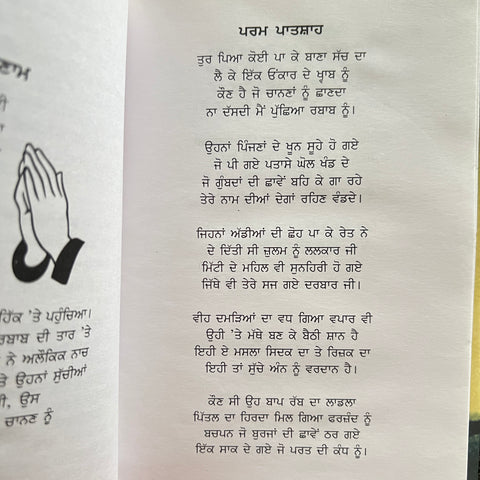 ਣਾਮ
ਹਿੱਕ 'ਤੇ ਪਹੁੰਚਿਆ।
ਰਬਾਬ ਦੀ ਤਾਰ 'ਤੇ
ਨੇ ਅਲੌਕਿਕ ਨਾਚ
ਤੇ ਉਹਨਾਂ ਸੁੱਚੀਆਂ
ੀ, ਉਸ
ਚਾਨਣ ਨੂੰ
ਪਰਮ ਪਾਤਸ਼ਾਹ
ਤੁਰ ਪਿਆ ਕੋਈ ਪਾ ਕੇ ਬਾਣਾ ਸੱਚ ਦਾ
ਲੈ ਕੇ ਇੱਕ ਓਂਕਾਰ ਦੇ ਖ੍ਵਾਬ ਨੂੰ
ਕੌਣ ਹੈ ਜੋ ਚਾਨਣਾਂ ਨੂੰ ਛਾਣਦਾ
ਨਾ ਦੱਸਦੀ ਮੈਂ ਪੁੱਛਿਆ ਰਬਾਬ ਨੂੰ।
ਉਹਨਾਂ ਪਿੰਜਣਾਂ ਦੇ ਖੂਨ ਸੂਹੇ ਹੋ ਗਏ
ਜੋ ਪੀ ਗਏ ਪਤਾਸੇ ਘੋਲ ਖੰਡ ਦੇ
ਜੋ ਗੁੰਬਦਾਂ ਦੀ ਛਾਵੇਂ ਬਹਿ ਕੇ ਗਾ ਰਹੇ
ਤੇਰੇ ਨਾਮ ਦੀਆਂ ਦੇਗਾਂ ਰਹਿਣ ਵੰਡਦੇ।
ਜਿਹਨਾਂ ਅੱਡੀਆਂ ਦੀ ਛੋਹ ਪਾ ਕੇ ਰੇਤ ਨੇ
ਦੇ ਦਿੱਤੀ ਸੀ ਜ਼ੁਲਮ ਨੂੰ ਲਲਕਾਰ ਜੀ
ਮਿੱਟੀ ਦੇ ਮਹਿਲ ਵੀ ਸੁਨਹਿਰੀ ਹੋ ਗਏ
ਜਿੱਥੇ ਵੀ ਤੇਰੇ ਸਜ ਗਏ ਦਰਬਾਰ ਜੀ।
ਵੀਹ ਦਮੜਿਆਂ ਦਾ ਵਧ ਗਿਆ ਵਪਾਰ ਵੀ
ਉਹੀ 'ਤੇ ਮੱਥੇ ਬਣ ਕੇ ਬੈਠੀ ਸ਼ਾਨ ਹੈ
ਇਹੀ ਏ ਮਸਲਾ ਸਿਦਕ ਦਾ ਤੇ ਰਿਜ਼ਕ ਦਾ
ਇਹੀ ਤਾਂ ਸੁੱਚੇ ਅੰਨ ਨੂੰ ਵਰਦਾਨ ਹੈ।
ਕੌਣ ਸੀ ਉਹ ਬਾਪ ਰੱਬ ਦਾ ਲਾਡਲਾ
ਪਿੱਤਲ ਦਾ ਹਿਰਦਾ ਮਿਲ ਗਿਆ ਫਰਜ਼ੰਦ ਨੂੰ
ਬਚਪਨ ਜੋ ਬੁਰਜਾਂ ਦੀ ਛਾਵੇਂ ਠਰ ਗਏ
ਇੱਕ ਸਾਕ ਦੇ ਗਏ ਜੋ ਪਰਤ ਦੀ ਕੰਧ ਨੂੰ।